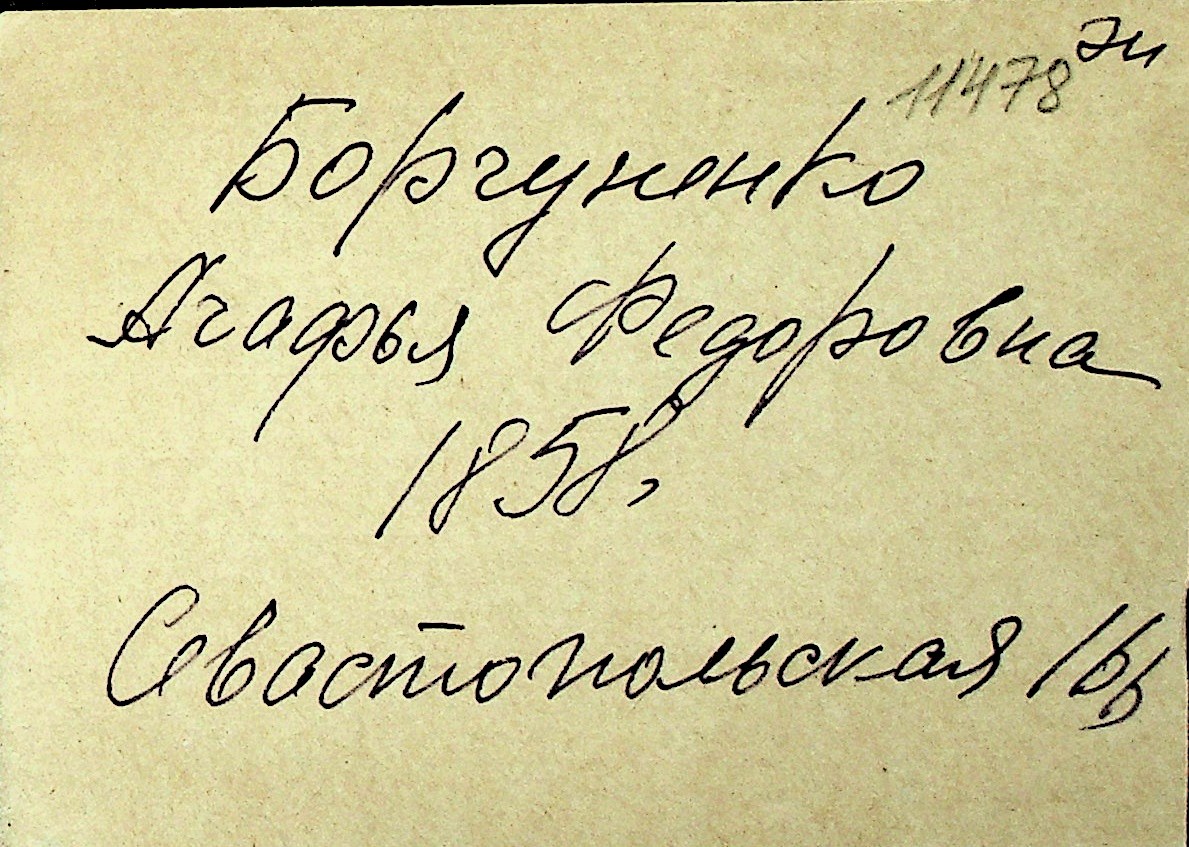 11478 эи
Боргуненко
Агафья Федоровна
1858,
Севастопольская